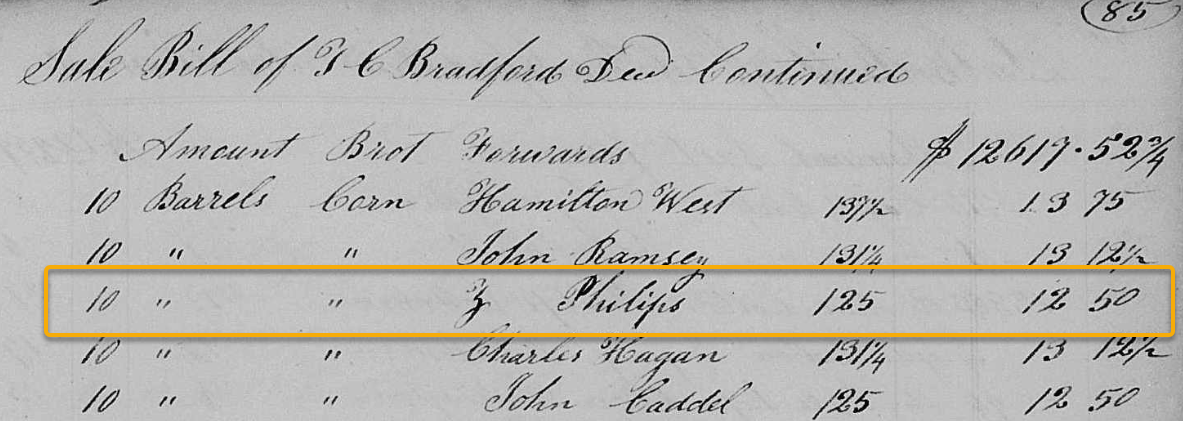 85
Sale Bill of T C Bradford Decd Continued
Amount Brot Forwards $ 12617.52 3/4
10 Barrels Corn Hamilton West 137 1/2 13 75
10 " " John Ramsey 131 1/4 13 12 1/2
10 " " Z Philips 125 12 50
10 " " Charles Hagan 131 1/4 13 12 1/2
10 " " John Caddel 125 12 50